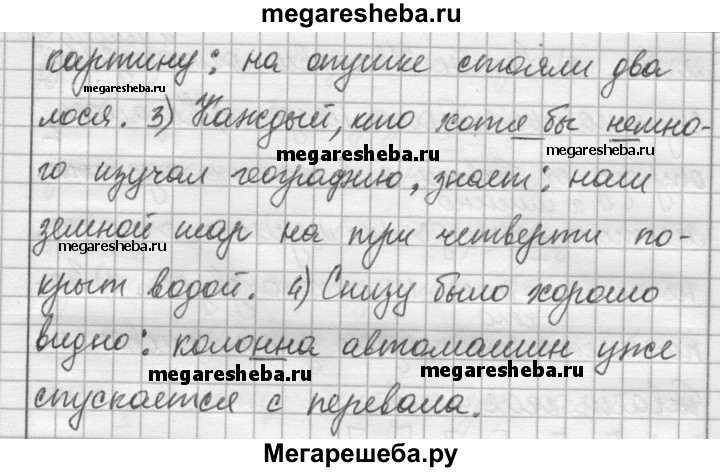 megaresheba.ru
картину: на опушке стояли два
megaresheba.ru
лося. 3) Каждый, кто хотя бы немно-
megaresheba.ru
megaresheba.ru
го изучал географию, знает: наш
земной шар на три четверти по-
megaresheba.ru
крыт водой. 4) Снизу было хорошо
видно: колонна автомашин уже
megaresheba.ru
megaresheba.ru
спускается с перевала.
Мегарешеба.ру